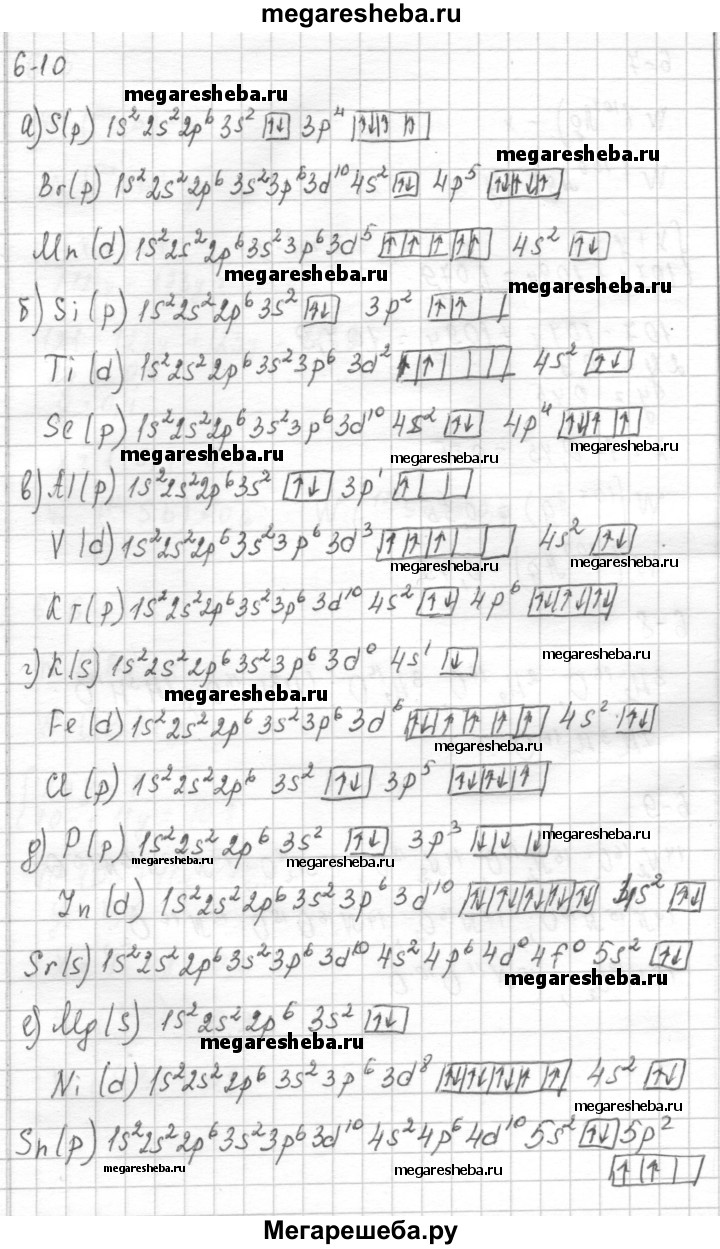 megaresheba.ru
6-10
megaresheba.ru
а) S(p) 1s²2s²2p⁶3s² [↑↓] 3p⁴ [↑↓|↑|↑]
megaresheba.ru
Br(p) 1s²2s²2p⁶3s²3p⁶3d¹⁰4s² [↑↓] 4p⁵ [↑↓|↑↓|↑]
Mn(d) 1s²2s²2p⁶3s²3p⁶3d⁵ [↑|↑|↑|↑|↑] 4s² [↑↓]
megaresheba.ru megaresheba.ru
б) Si(p) 1s²2s²2p⁶3s² [↑↓] 3p² [↑|↑| ]
Ti(d) 1s²2s²2p⁶3s²3p⁶ 3d² [↑|↑| | | ] 4s² [↑↓]
Se(p) 1s²2s²2p⁶3s²3p⁶3d¹⁰4s² [↑↓] 4p⁴ [↑↓|↑|↑]
megaresheba.ru megaresheba.ru megaresheba.ru
в) Al(p) 1s²2s²2p⁶3s² [↑↓] 3p¹ [↑| | ]
V(d) 1s²2s²2p⁶3s²3p⁶3d³ [↑|↑|↑| | ] 4s² [↑↓]
megaresheba.ru megaresheba.ru
Kr(p) 1s²2s²2p⁶3s²3p⁶3d¹⁰4s² [↑↓] 4p⁶ [↑↓|↑↓|↑↓]
г) K(s) 1s²2s²2p⁶3s²3p⁶3d⁰ 4s¹ [↓] megaresheba.ru
megaresheba.ru
Fe(d) 1s²2s²2p⁶3s²3p⁶3d⁶ [↑↓|↑|↑|↑|↑] 4s² [↑↓]
megaresheba.ru
Cl(p) 1s²2s²2p⁶ 3s² [↑↓] 3p⁵ [↑↓|↑↓|↑]
д) P(p) 1s²2s²2p⁶3s² [↑↓] 3p³ [↓|↓|↓] megaresheba.ru
megaresheba.ru megaresheba.ru megaresheba.ru
Zn(d) 1s²2s²2p⁶3s²3p⁶3d¹⁰ [↑↓|↑↓|↑↓|↑↓|↑↓] 4s² [↑↓]
Sr(s) 1s²2s²2p⁶3s²3p⁶3d¹⁰4s²4p⁶4d⁰4f⁰5s² [↑↓]
megaresheba.ru
е) Mg(s) 1s²2s²2p⁶ 3s² [↑↓]
megaresheba.ru
Ni(d) 1s²2s²2p⁶3s²3p⁶3d⁸ [↑↓|↑↓|↑↓|↑|↑] 4s² [↑↓]
megaresheba.ru
Sn(p) 1s²2s²2p⁶3s²3p⁶3d¹⁰4s²4p⁶4d¹⁰5s² [↑↓] 5p²
megaresheba.ru megaresheba.ru [↑|↑| ]
Мегарешеба.ру